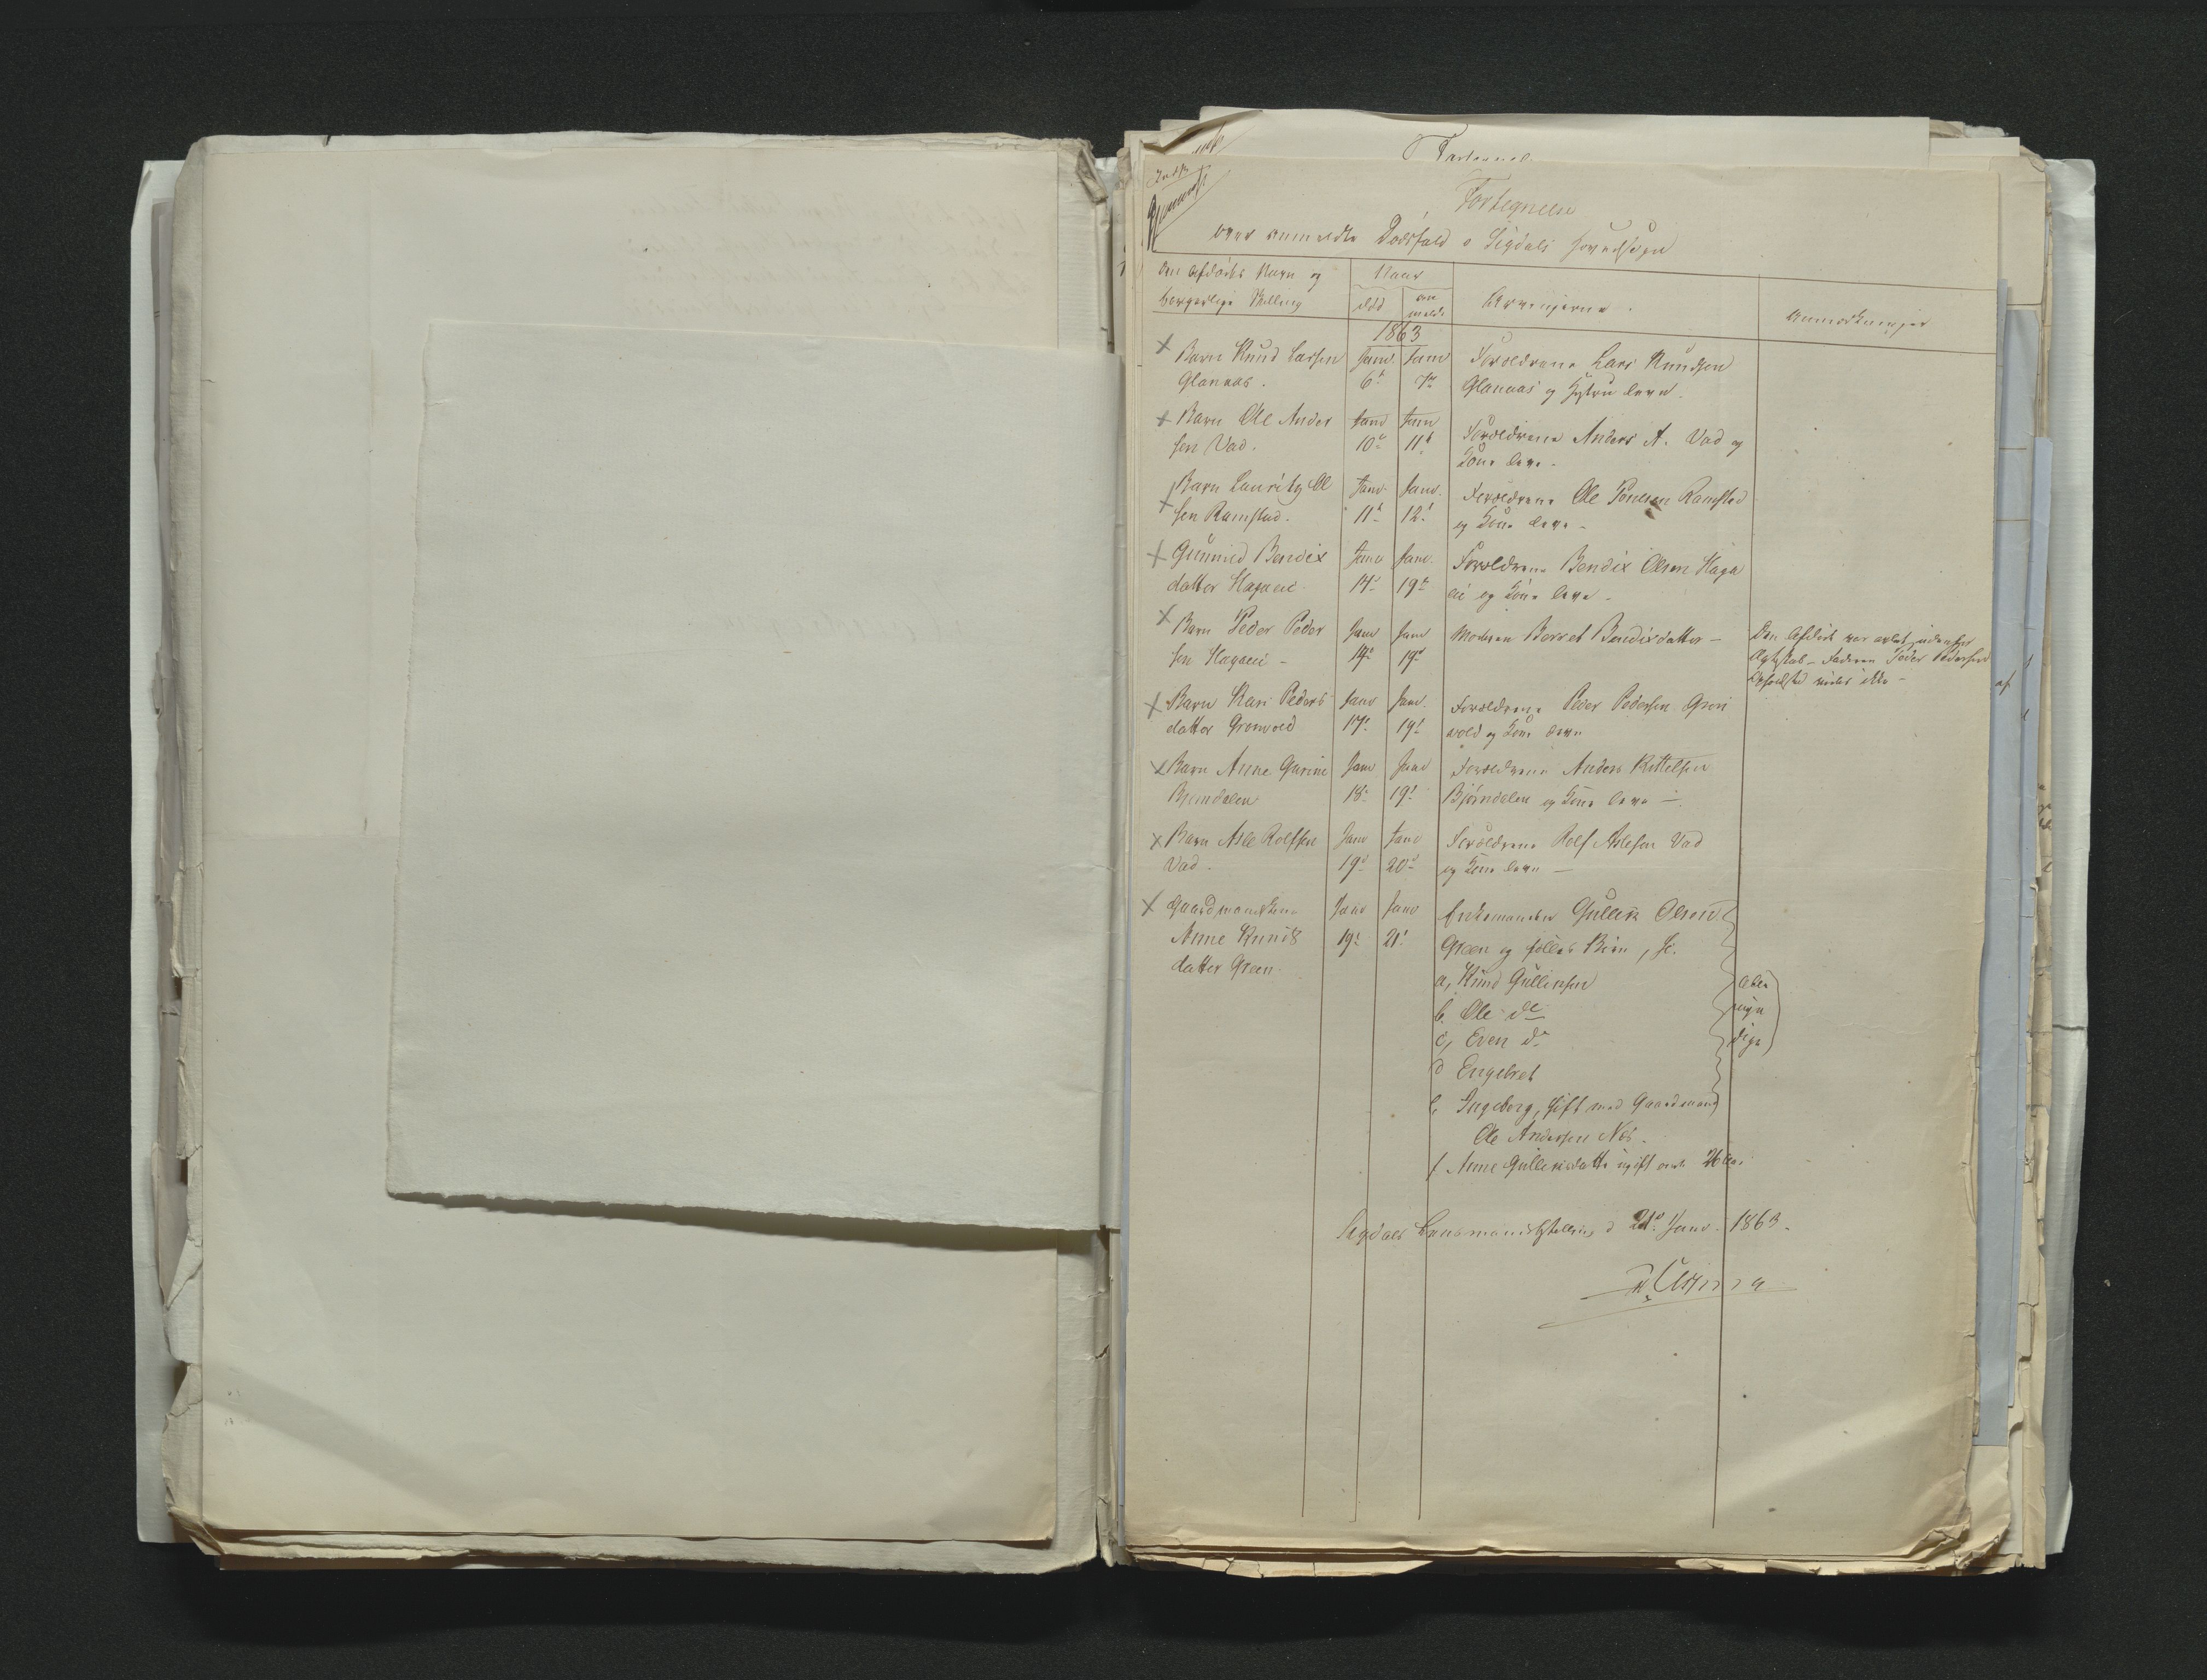 Fortegnelse
over anmeldte Dødsfald i Sigdals hovedsogn
Den Afdødes Navn og
borgerlige Stilling
Naar
død
an
meldt
Arvingerne.
Anmærkninger
1863
Barn Knud Larsen
Glanaas.
Janv. 6te
Janv 7de
Forældrene Lars Knudsen
Glanaas og Hustru leve.
Barn Ole Ander
sen Vad.
Janv 10de
Janv 11te
Forældrene Anders A. Vad og
Kone leve.
Barn Lauritz Ol
sen Ramstad.
Janv. 11te
Janv. 12te
Forældrene Ole Ramstad
og Kone leve -
Gunnild Bendix
datter Hagaeie
Janv 14de
Janv. 19de
Forældrene Bendix Olsen Haga
eie og Kone leve -
Barn Peder Peder
sen Hagaeie -
Janv 14de
Janv 19de
Moderen Berret Bendixdatter -
Den Afdøde var avlet udenfor
Ægteskab - Faderen Peder Pedersens
Opholdsted vides ikke -
Barn Kari Peders
datter Grønvold
Janv 17de
Janv. 19de
Forældrene Peder Pedersen Grøn
vold og Kone leve
Barn Anne Gurine
Bjørndalen
Janv 18de
Janv 19de
Forældrene Anders Kittelsen
Bjørndalen og Kone leve -
Barn Asle Rolfsen
Vad.
Janv 19de
Janv 20de
Forældrene Rolf Aslesen Vad
og Kone leve -
Gaardmandskone
Anne Knuds
datter Green
Janv 19de
Janv 21de
Enkemanden Gullik Olsen
Green og fælles Børn,
a, Knud Gulliksen
b. Ole do
c, Even do
d Engebret
e, Ingeborg, gift med Gaardmand
Ole Andersen Næs.
f Anne Gulliksdatter ugift over 26 Aar
alle
myn
dige
Sigdals Lensmandsbestilling d 21de Janv. 1863.